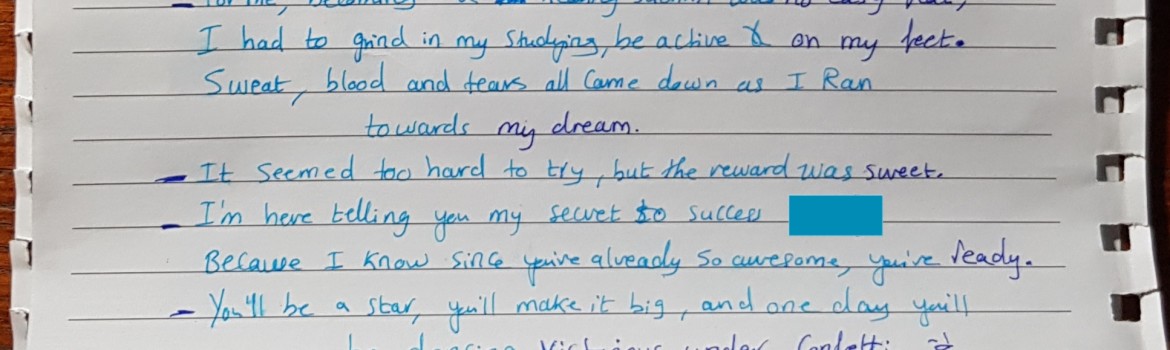 I had to grind in my studying, be active & on my feet.
Sweat, blood and tears all came down as I Ran
towards my dream.
- It seemed too hard to try, but the reward was sweet.
- I'm here telling you my secret to success
Because I know since you're already so awesome, you're ready.
- You'll be a star, you'll make it big, and one day you'll
under confetti